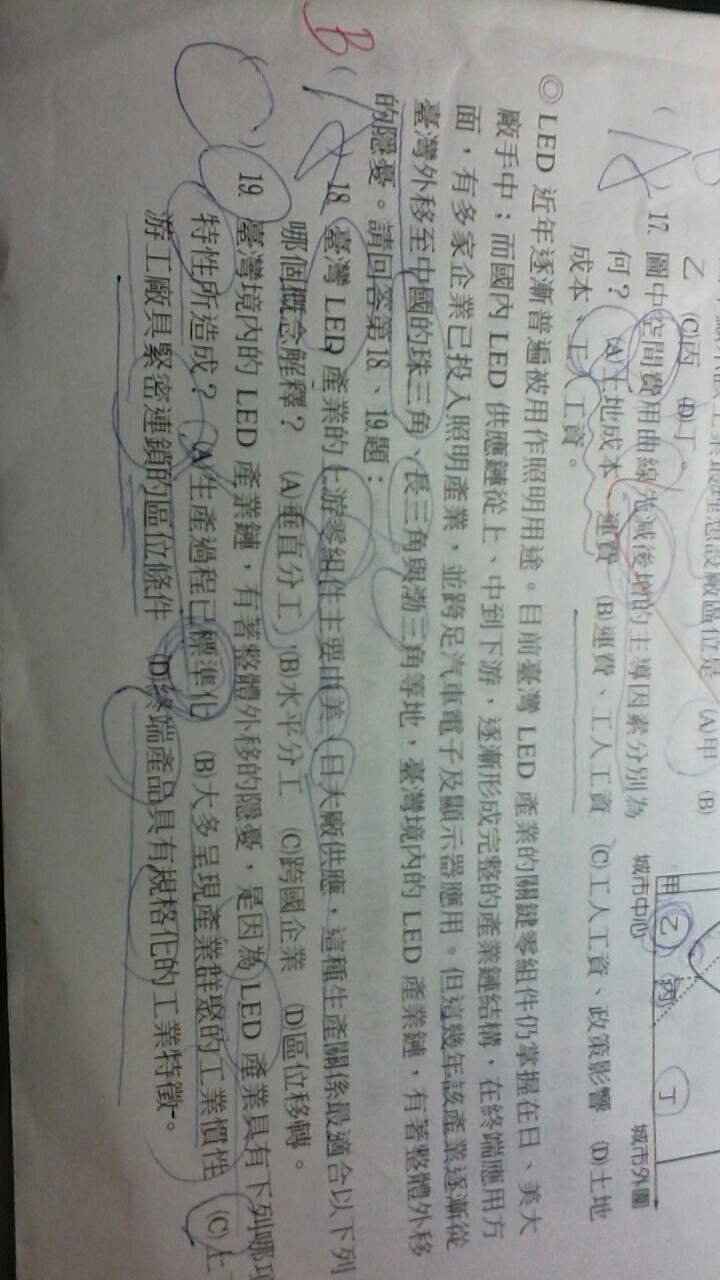 乙 (C)丙 (D)丁。
(A)甲 (B)
17. 圖中空間費用曲線先減後增的主導因素分別為
何？ (A)土地成本、運費 (B)運費、工人工資 (C)工人工資、政策影響 (D)土地
成本、工人工資。
城市中心
甲 乙 丙 丁
城市外圍
◎ LED 近年逐漸普遍被用作照明用途。目前臺灣 LED 產業的關鍵零組件仍掌握在日、美大
廠手中；而國內 LED 供應鏈從上、中到下游，逐漸形成完整的產業鏈結構，在終端應用方
面，有多家企業已投入照明產業，並跨足汽車電子及顯示器應用。但這幾年該產業逐漸從
臺灣外移至中國的珠三角、長三角與渤三角等地，臺灣境內的 LED 產業鏈，有著整體外移
的隱憂。請回答第18、19題：
B
18. 臺灣 LED 產業的上游零組件主要由美、日大廠供應，這種生產關係最適合以下列
哪個概念解釋？ (A)垂直分工 (B)水平分工 (C)跨國企業 (D)區位移轉。
19. 臺灣境內的 LED 產業鏈，有著整體外移的隱憂，是因為 LED 產業具有下列哪項
特性所造成？ (A)生產過程已標準化 (B)大多呈現產業群聚的工業慣性 (C)上
游工廠具緊密連鎖的區位條件 (D)終端產品具有規格化的工業特徵。